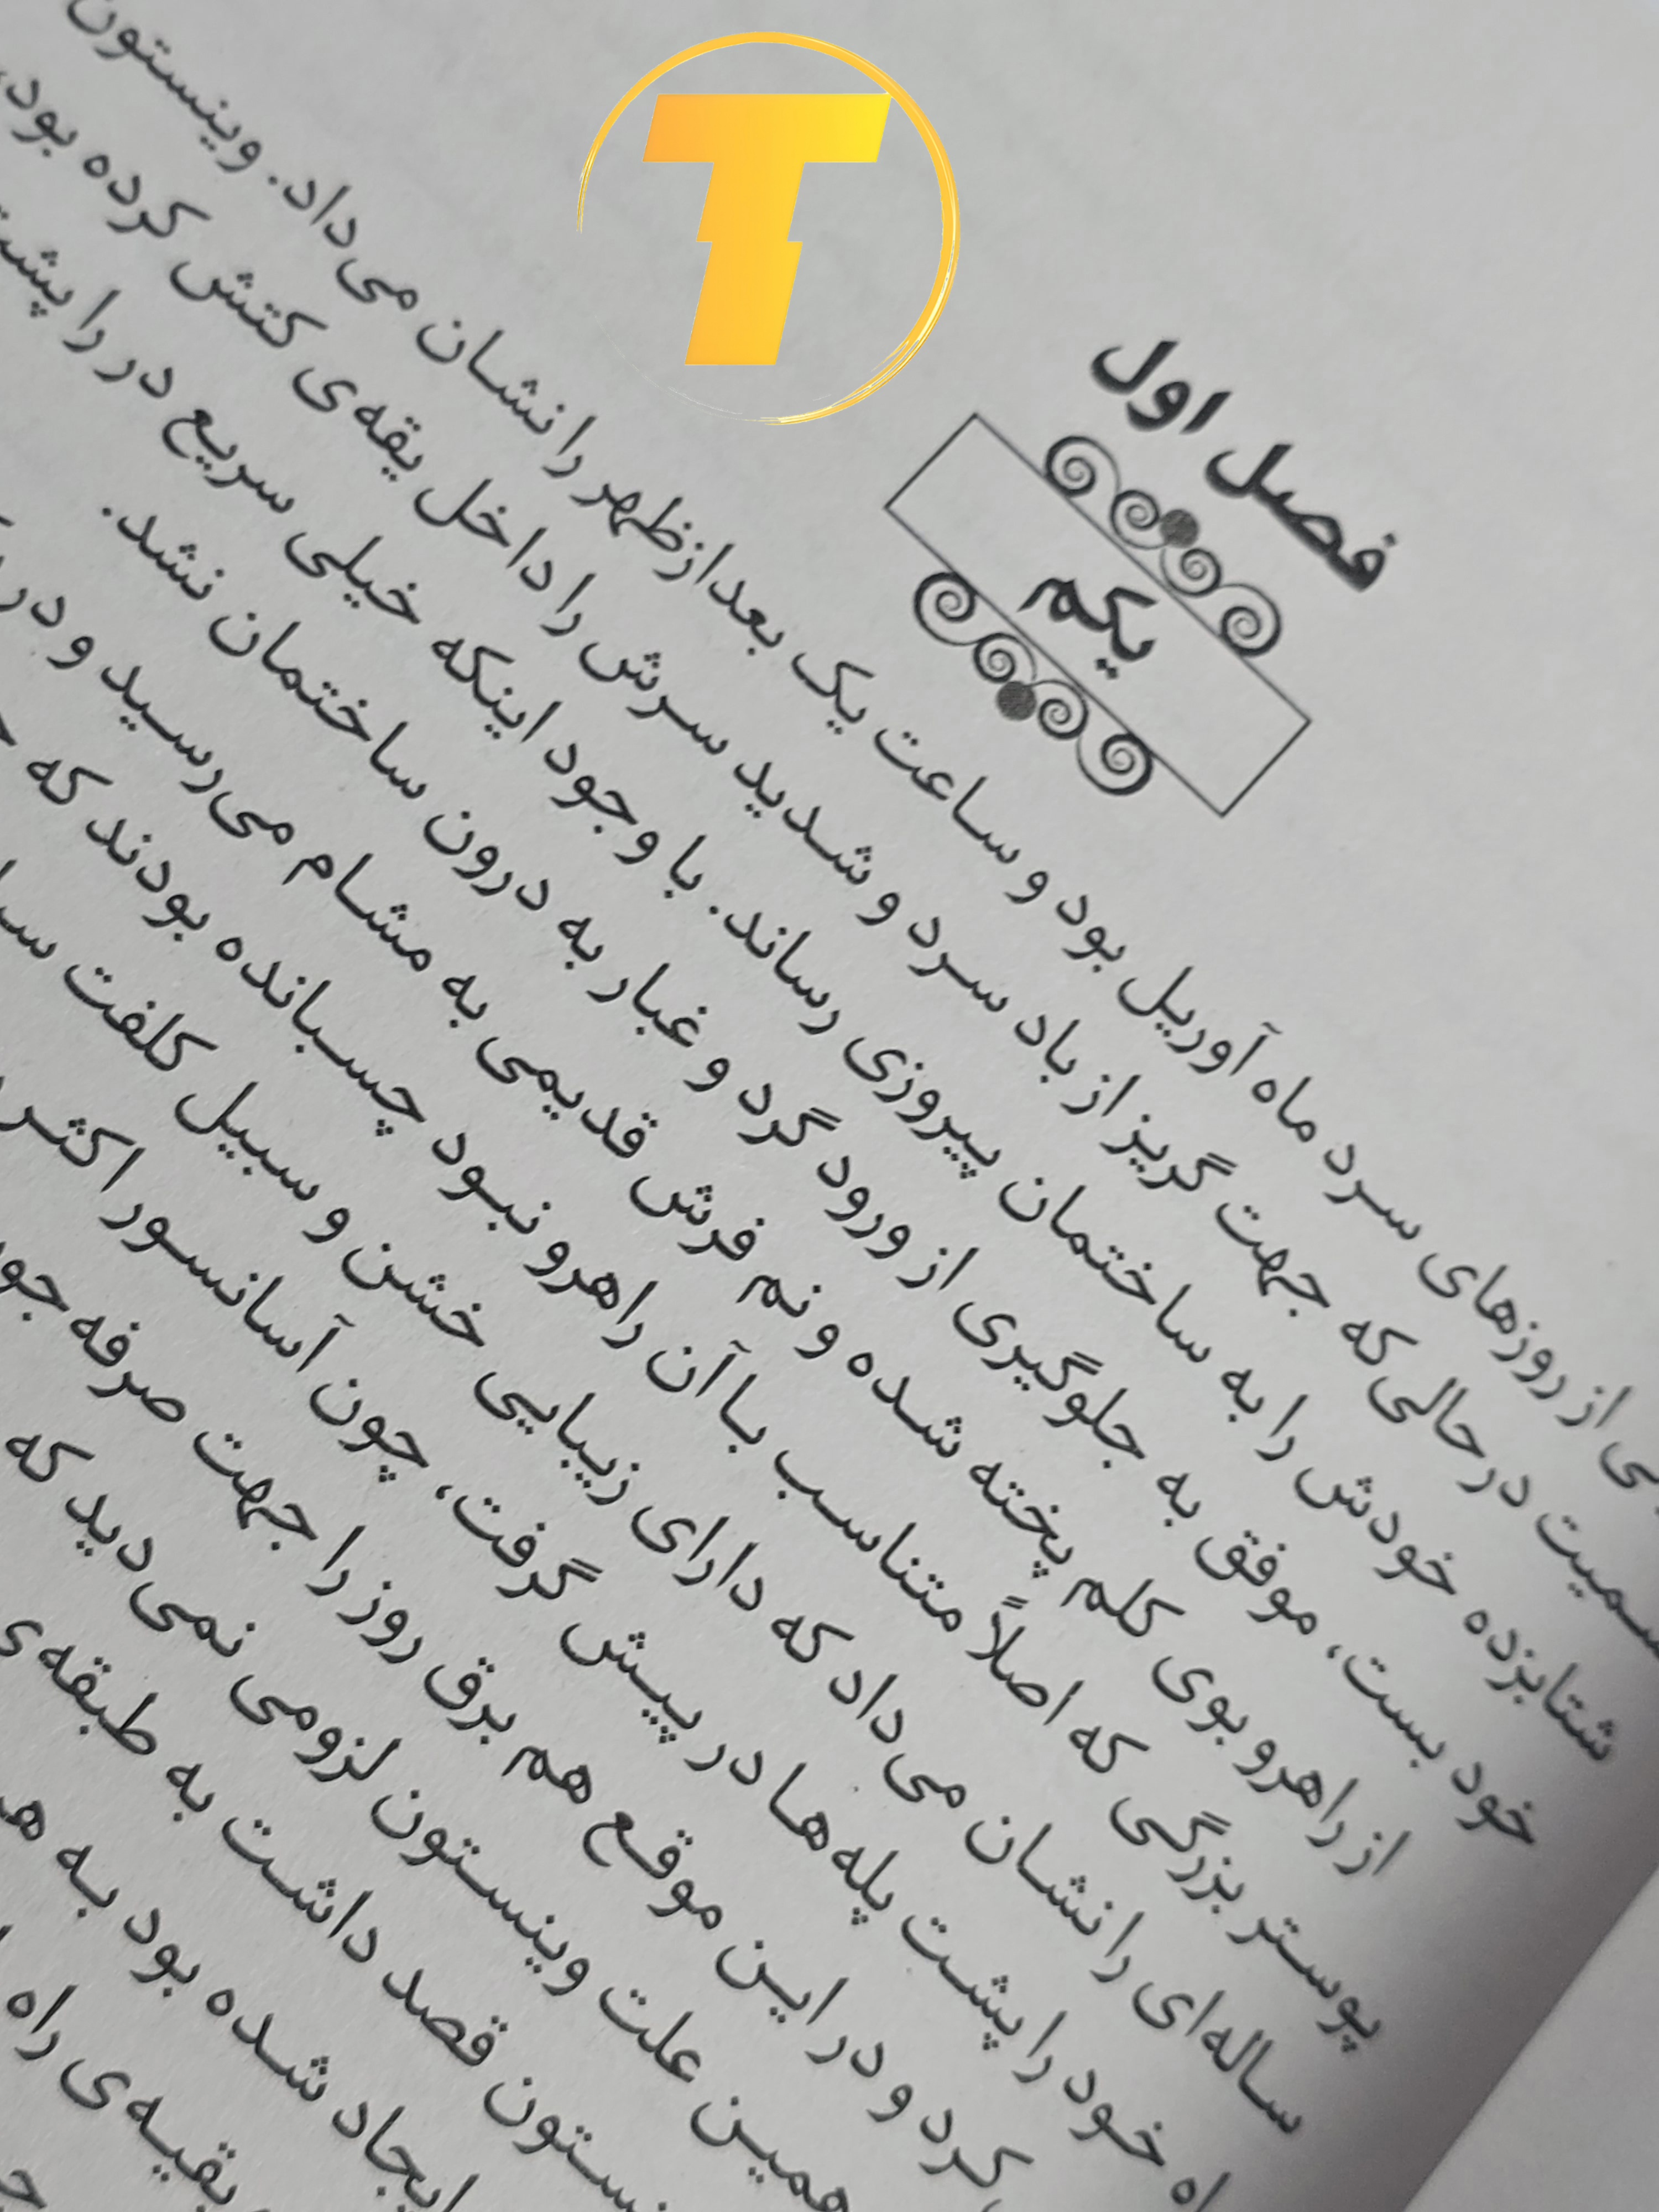 T
فصل اول
یکم
از روزهای سرد ماه آوریل بود و ساعت یک بعدازظهر را نشان می‌داد. وینستون
در حالی که جهت گریز از باد سرد و شدید سرش را داخل یقه‌ی کتش کرده بود،
شتابزده خودش را به ساختمان پیروزی رساند. با وجود اینکه خیلی سریع در را پشت
خود بست، موفق به جلوگیری از ورود گرد و غبار به درون ساختمان نشد.
از راهرو بوی کلم پخته شده و نم فرش قدیمی به مشام می‌رسید و در
پوستر بزرگی که اصلاً متناسب با آن راهرو نبود چسبانده بودند که
ساله‌ای را نشان می‌داد که دارای زیبایی خشن و سبیل کلفت
خود را پشت پله‌ها در پیش گرفت، چون آسانسور اکثر
کرد و در این موقع هم برق روز را جهت صرفه
همین علت وینستون لزومی نمی‌دید که
قصد داشت به طبقه‌ی
ایجاد شده بود به
بقیه‌ی راه